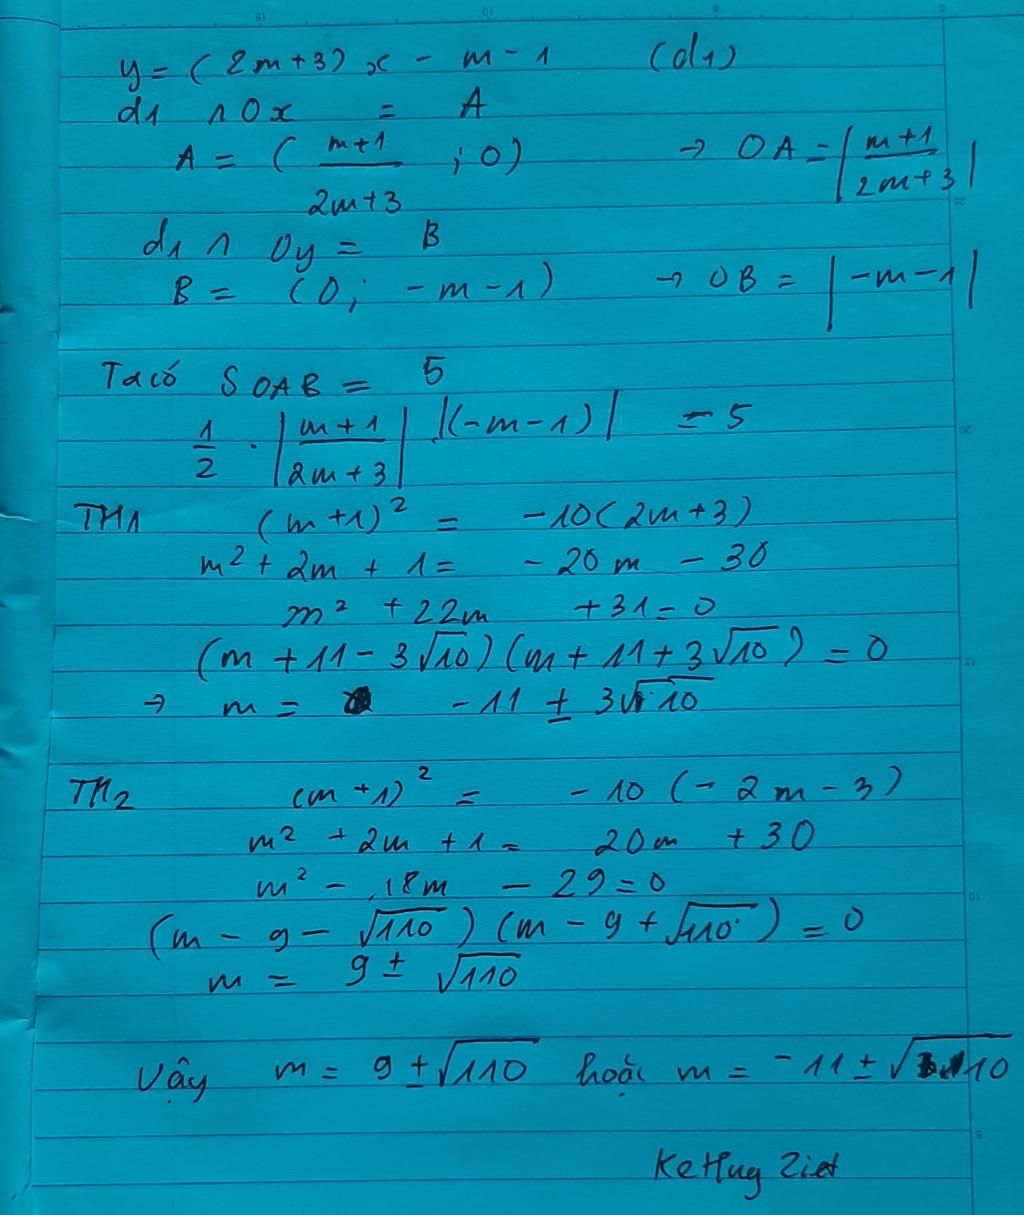 y = (2m+3) x - m - 1 (d1)
d1 ∩ Ox = A
A = ( \frac{m+1}{2m+3} ; 0) → OA = | \frac{m+1}{2m+3} |
d1 ∩ Oy = B
B = (0; -m-1) → OB = |-m-1|
Ta có S OAB = 5
\frac{1}{2} . | \frac{m+1}{2m+3} | . |(-m-1)| = 5
TH1 (m+1)² = -10(2m+3)
m² + 2m + 1 = - 20m - 30
m² + 22m + 31 = 0
(m + 11 - 3√10) (m + 11 + 3√10) = 0
→ m = - 11 ± 3√10
TH2 (m+1)² = - 10 (- 2m - 3)
m² + 2m + 1 = 20m + 30
m² - 18m - 29 = 0
(m - 9 - √110) (m - 9 + √110) = 0
m = 9 ± √110
Vậy m = 9 ± √110 hoặc m = -11 ± √10